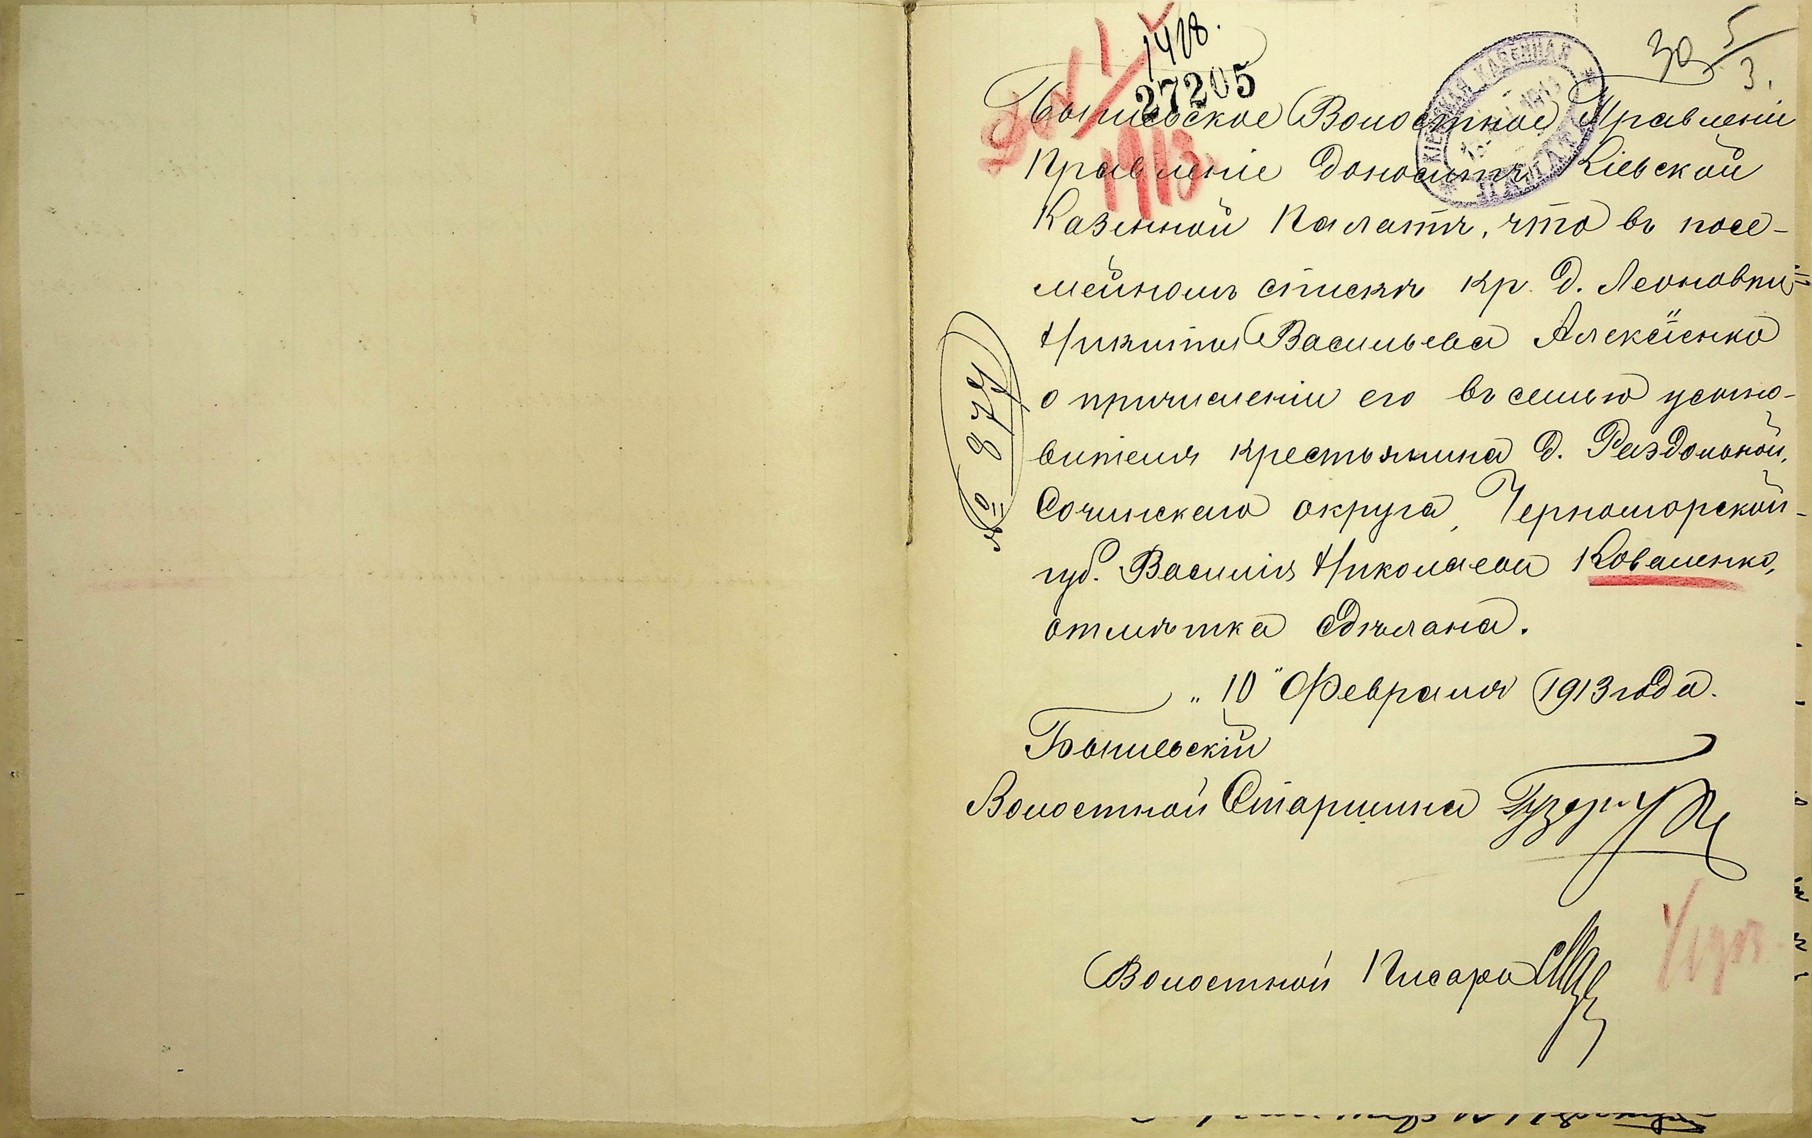 1418.
27205
30 5/3.
КІЕВСКАЯ КАЗЕННАЯ
ПАЛАТА
1913
Волостное Правленіе
Правленіе доноситъ Кіевской
Казенной Палатѣ, что въ посе-
мейномъ спискѣ кр. д. Леоновки
Никиты Васильева Алексѣенко
о причисленіи его въ семью усыно-
вителя крестьянина д. Раздольной,
Сочинскаго округа, Черноморской
губ. Василія Николаева Коваленко,
отмѣтка сдѣлана.
„10" Февраля 1913 года.
Волостной Старшина
Волостной Писарь
№ 877